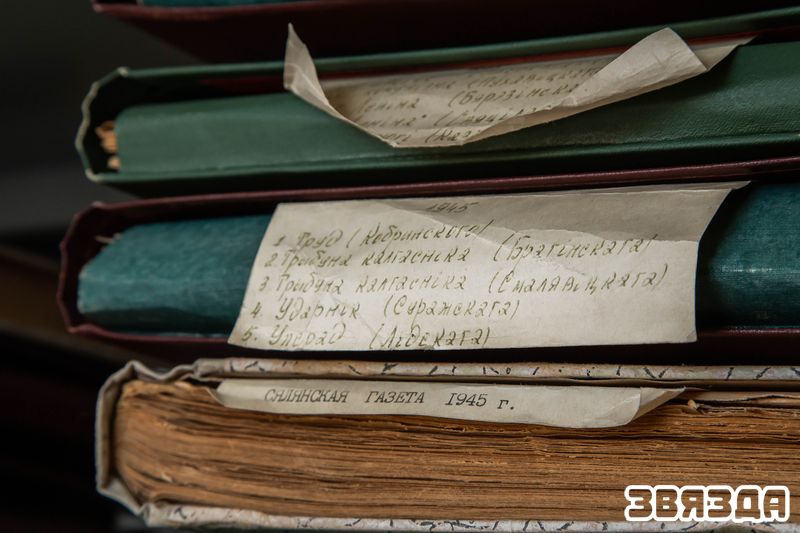 (Бярэзінска
1945
1 Труд (Кобринского)
2. Трыбуна калгасніка (Брагінскага)
3 Трыбуна калгасніка (Смалявіцкага)
4. Ударнік (Суражскага)
5. Уперад (Лідскага)
СЯЛЯНСКАЯ ГАЗЕТА 1945 г.
ЗВЯЗДА